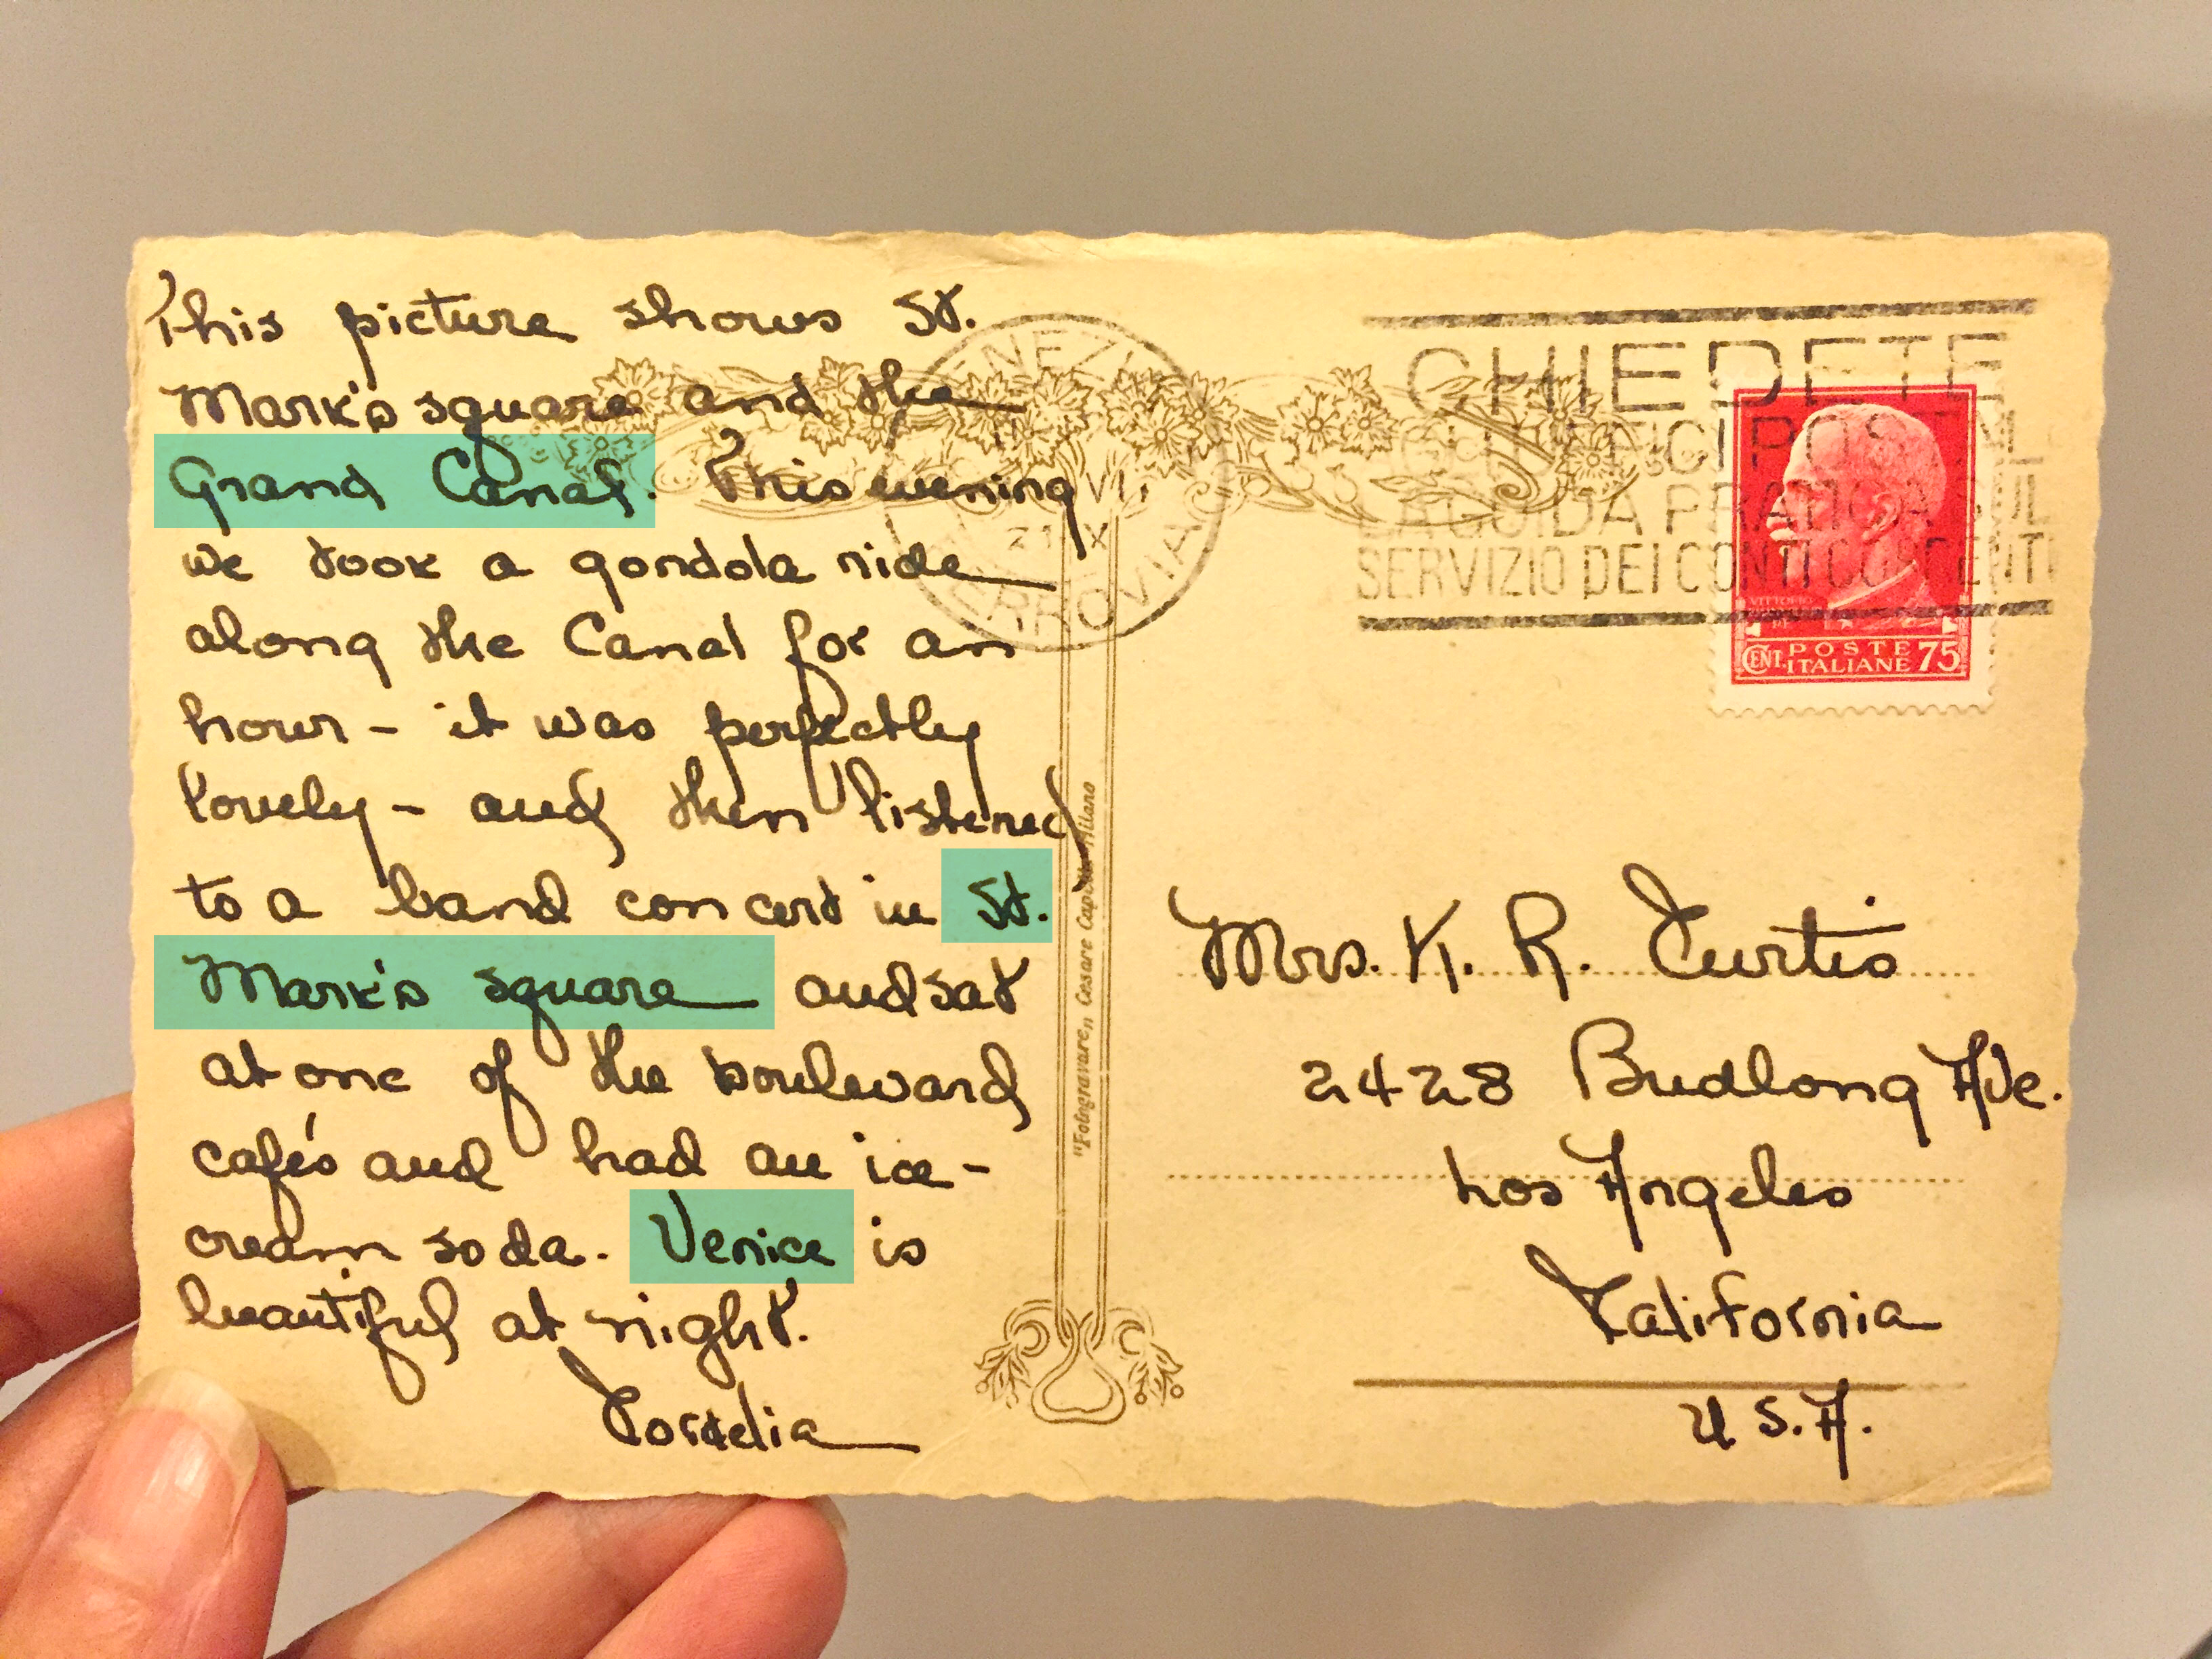 This picture shows St.
Mark's square and the
Grand Canal. This evening
we took a gondola ride
along the Canal for an
hour - it was perfectly
lovely - and then listened
to a band concert in St.
Mark's square and sat
at one of the boulevard
cafés and had an ice-
cream soda. Venice is
beautiful at night.
Cordelia
"Fotogravure" Cesare Capello - Milano
VENEZIA
21 X
FERROVIA
CHIEDETE
LA GUIDA PRATICA SUL
SERVIZIO DEI CONTI CORRENTI
VITTORIO
CENT. POSTE
ITALIANE 75
Mrs. K. R. Curtis
2428 Budlong Ave.
Los Angeles
California
U.S.A.